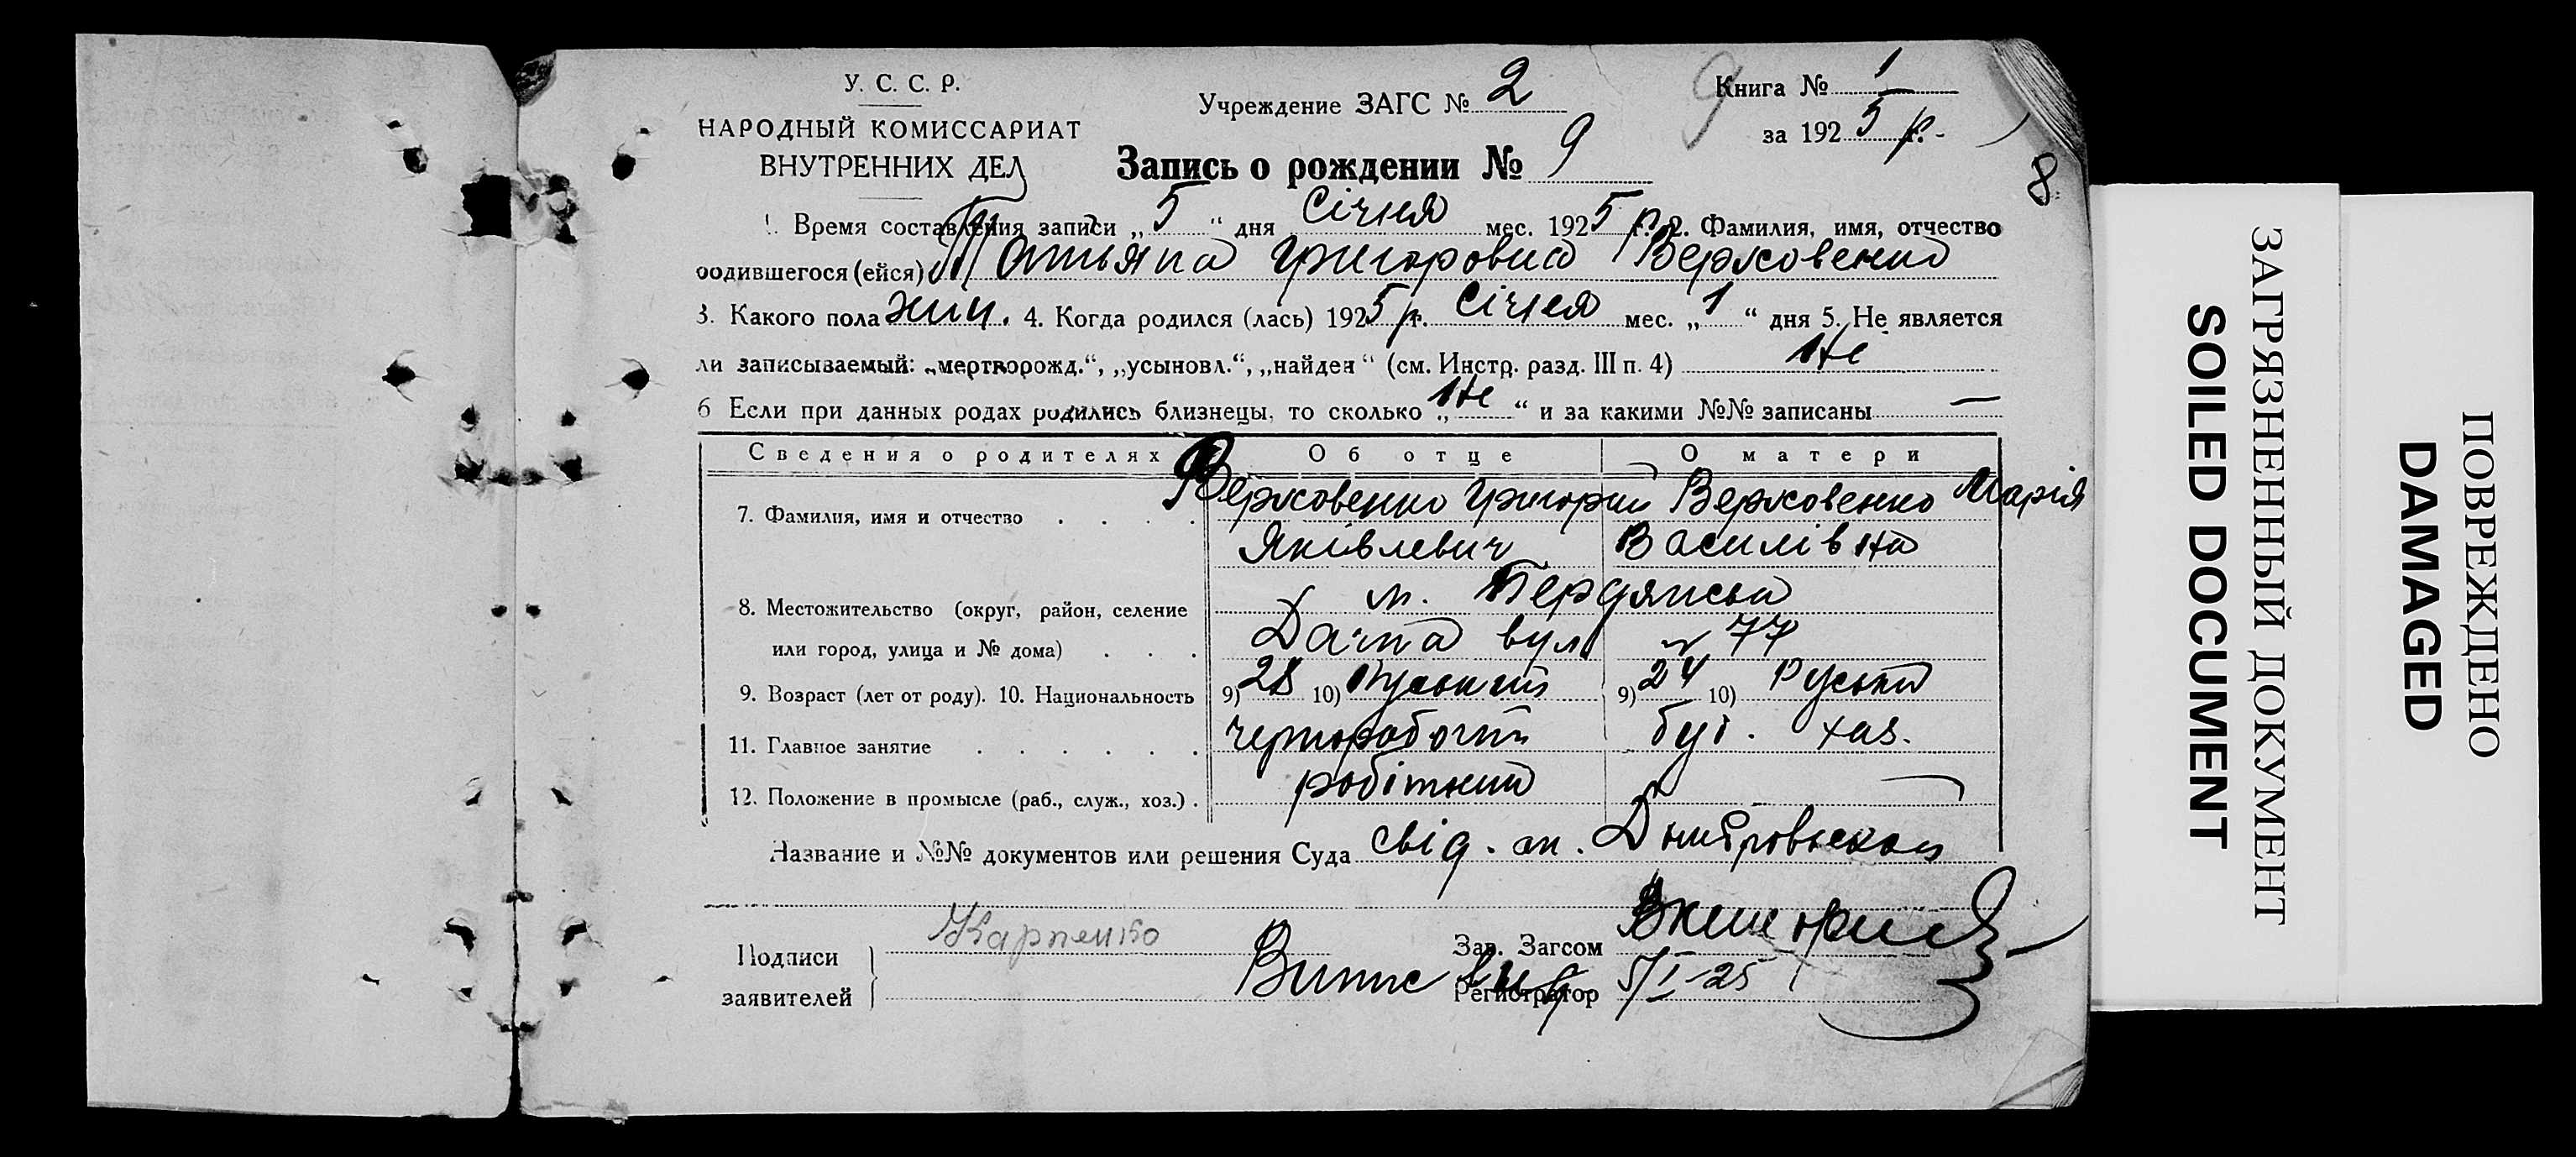 У. С. С. Р.
НАРОДНЫЙ КОМИССАРИАТ
ВНУТРЕННИХ ДЕЛ
Учреждение ЗАГС № 2
9
Книга № 1
за 1925 р.
8
Запись о рождении № 9
1. Время составления записи „5“ дня Січня мес. 1925 р. 2. Фамилия, имя, отчество
родившегося (ейся) Татьяна Григоровна Верховенко
3. Какого пола жін. 4. Когда родился (лась) 1925 р. Січня мес. „1“ дня 5. Не является
ли записываемый: „мертворожд.“, „усыновл.“, „найден“ (см. Инстр. разд. III п. 4) Не
6 Если при данных родах родились близнецы, то сколько „Не“ и за какими №№ записаны —
Сведения о родителях Об отце О матери
7. Фамилия, имя и отчество Верховенко Григорий Верховенко Марія
Яківлевич Василівна
8. Местожительство (округ, район, селение м. Бердянськ
или город, улица и № дома) Дачна вул № 77
9. Возраст (лет от роду). 10. Национальность 9) 28 10) Руський 9) 24 10) Руська
11. Главное занятие чернорабочий буд. хаз.
12. Положение в промысле (раб., служ., хоз.) робітник —
Название и №№ документов или решения Суда свід. ак.
Подписи
заявителей
Карпенко
Зав. Загсом
Регистратор 5/I-25
ЗАГРЯЗНЕННЫЙ ДОКУМЕНТ
SOILED DOCUMENT
ПОВРЕЖДЕНО
DAMAGED